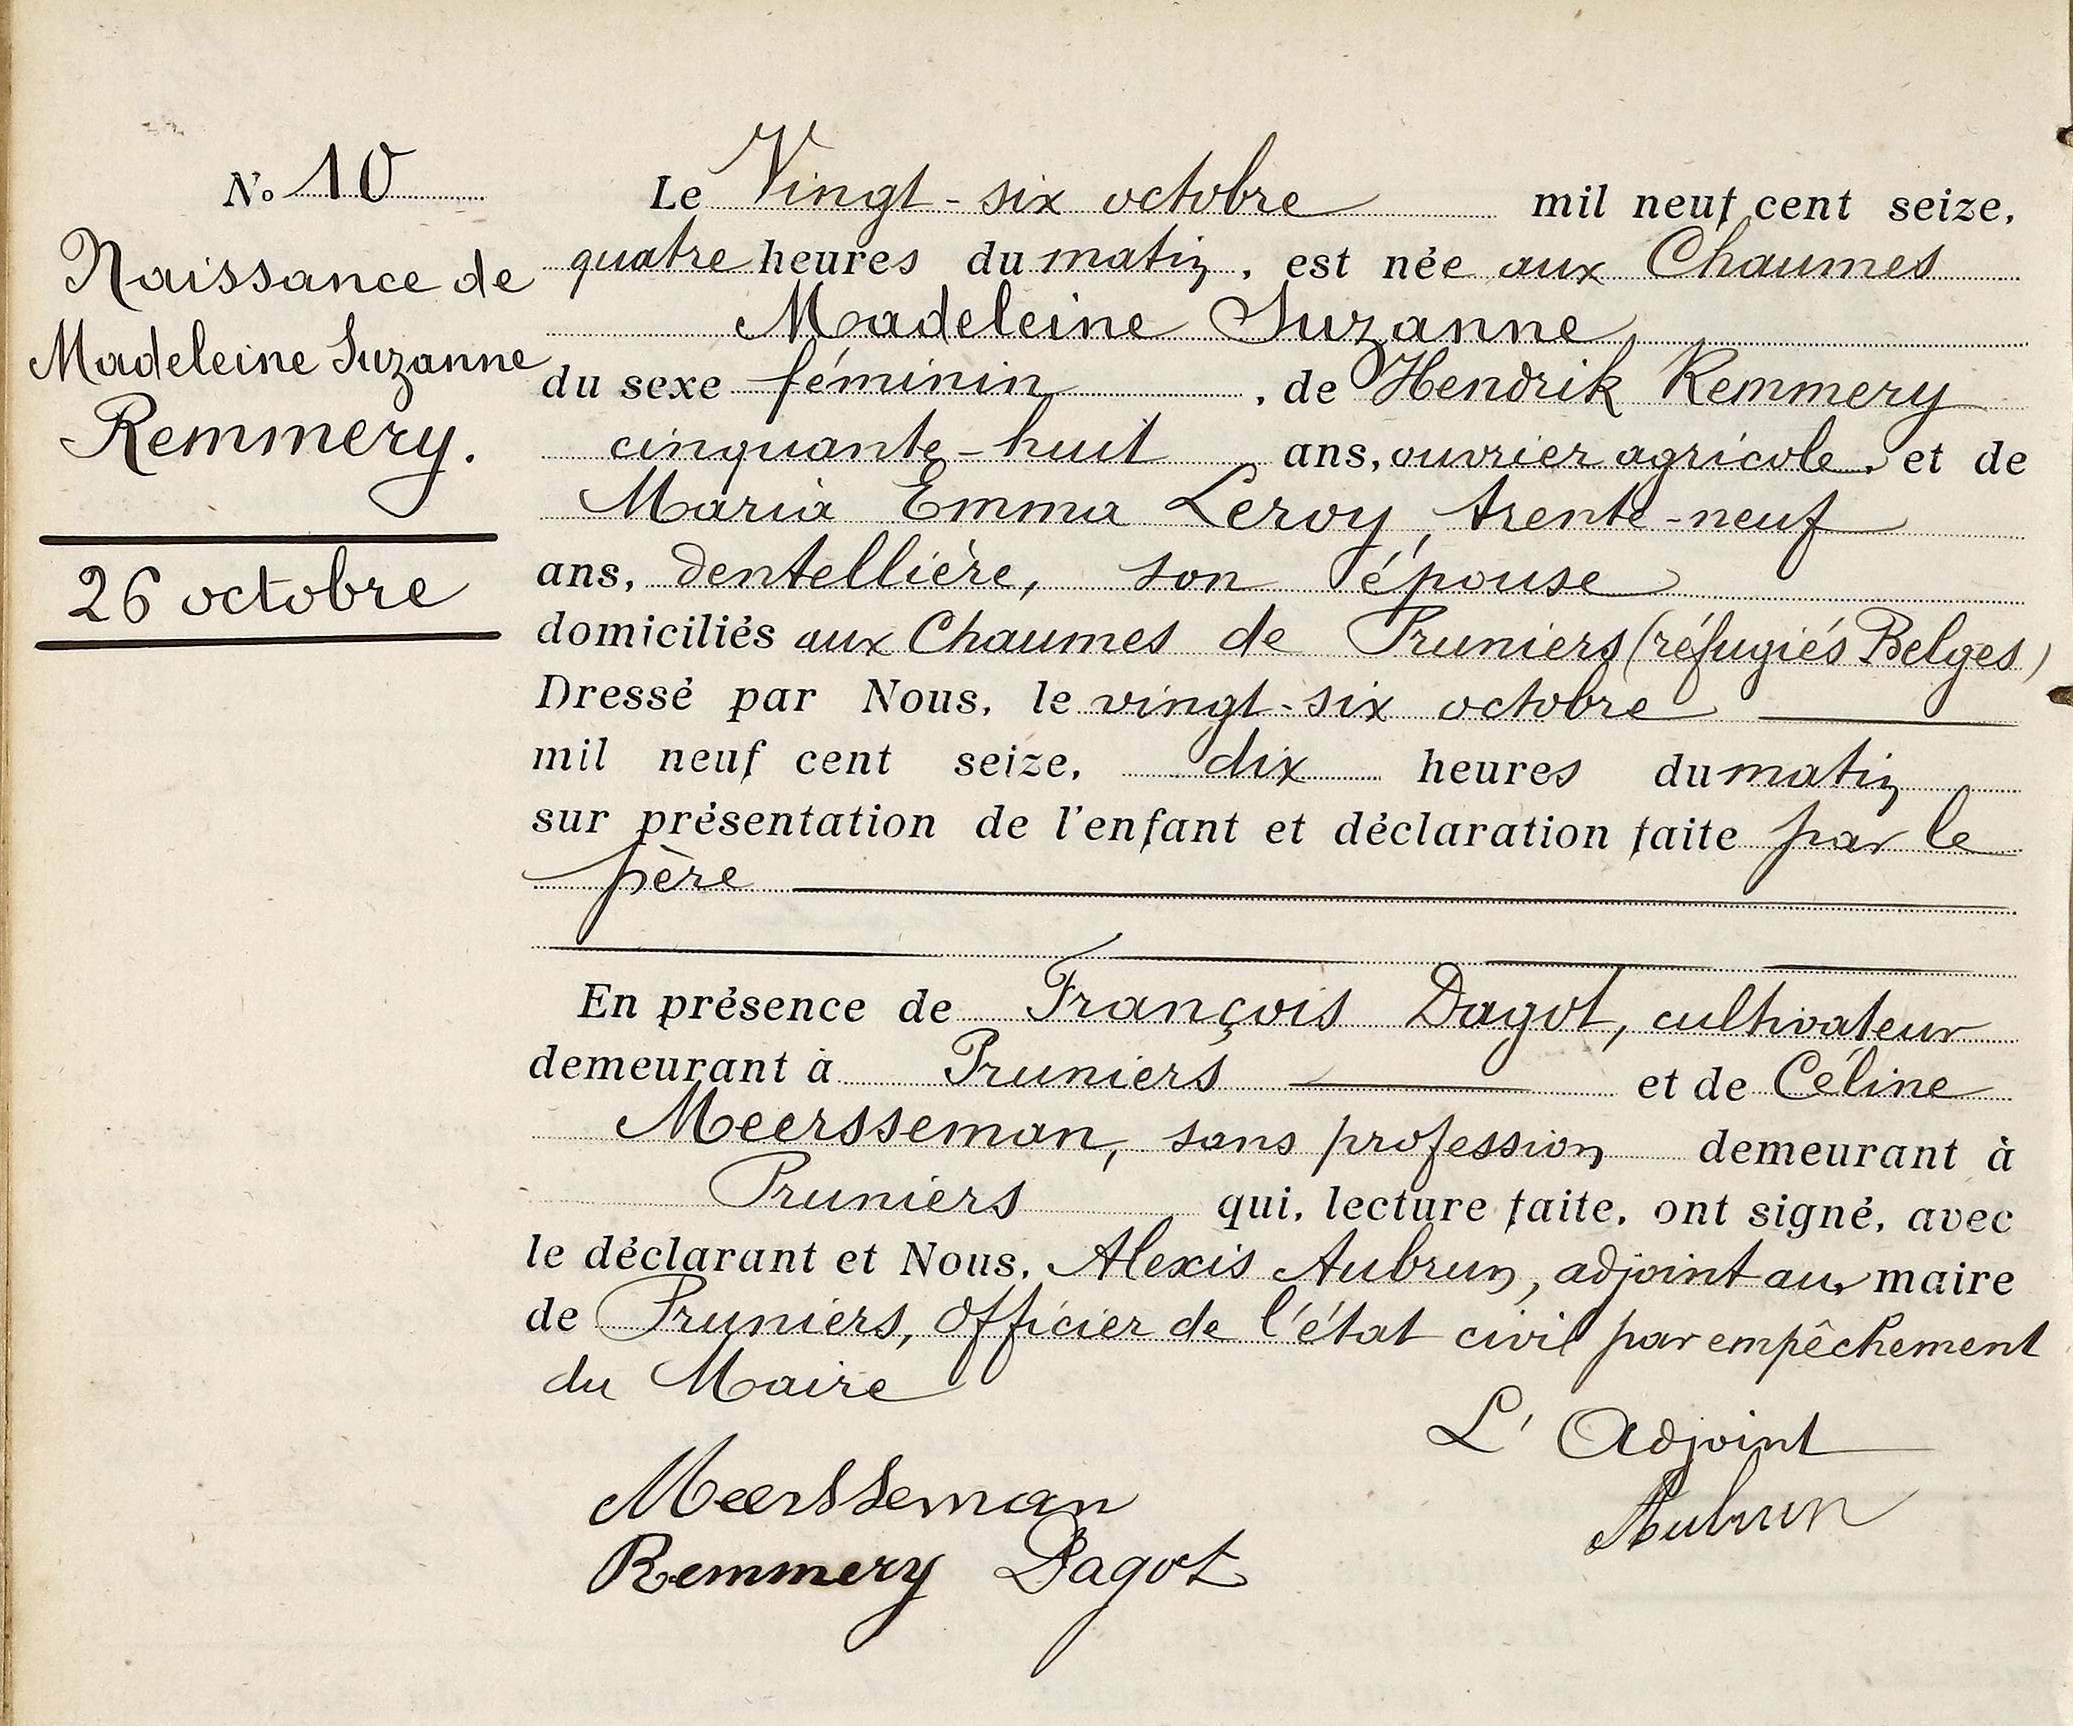 No 10
Naissance de
Madeleine Suzanne
Remmery.
26 octobre
Le Vingt-six octobre mil neuf cent seize,
quatre heures du matin, est née aux Chaumes
Madeleine Suzanne
du sexe féminin, de Hendrik Remmery
cinquante-huit ans, ouvrier agricole, et de
Maria Emma Leroy, trente-neuf
ans, dentellière, son épouse
domiciliés aux Chaumes de Pruniers (réfugiés Belges)
Dressé par Nous, le vingt-six octobre
mil neuf cent seize, dix heures du matin
sur présentation de l'enfant et déclaration faite par le
père
En présence de François Dagot, cultivateur
demeurant à Pruniers et de Céline
Meersseman, sans profession demeurant à
Pruniers qui, lecture faite, ont signé, avec
le déclarant et Nous, Alexis Aubrun, adjoint au maire
de Pruniers, Officier de l'état civil par empêchement
du Maire
L'Adjoint
Meersseman
Aubrun
Remmery Dagot